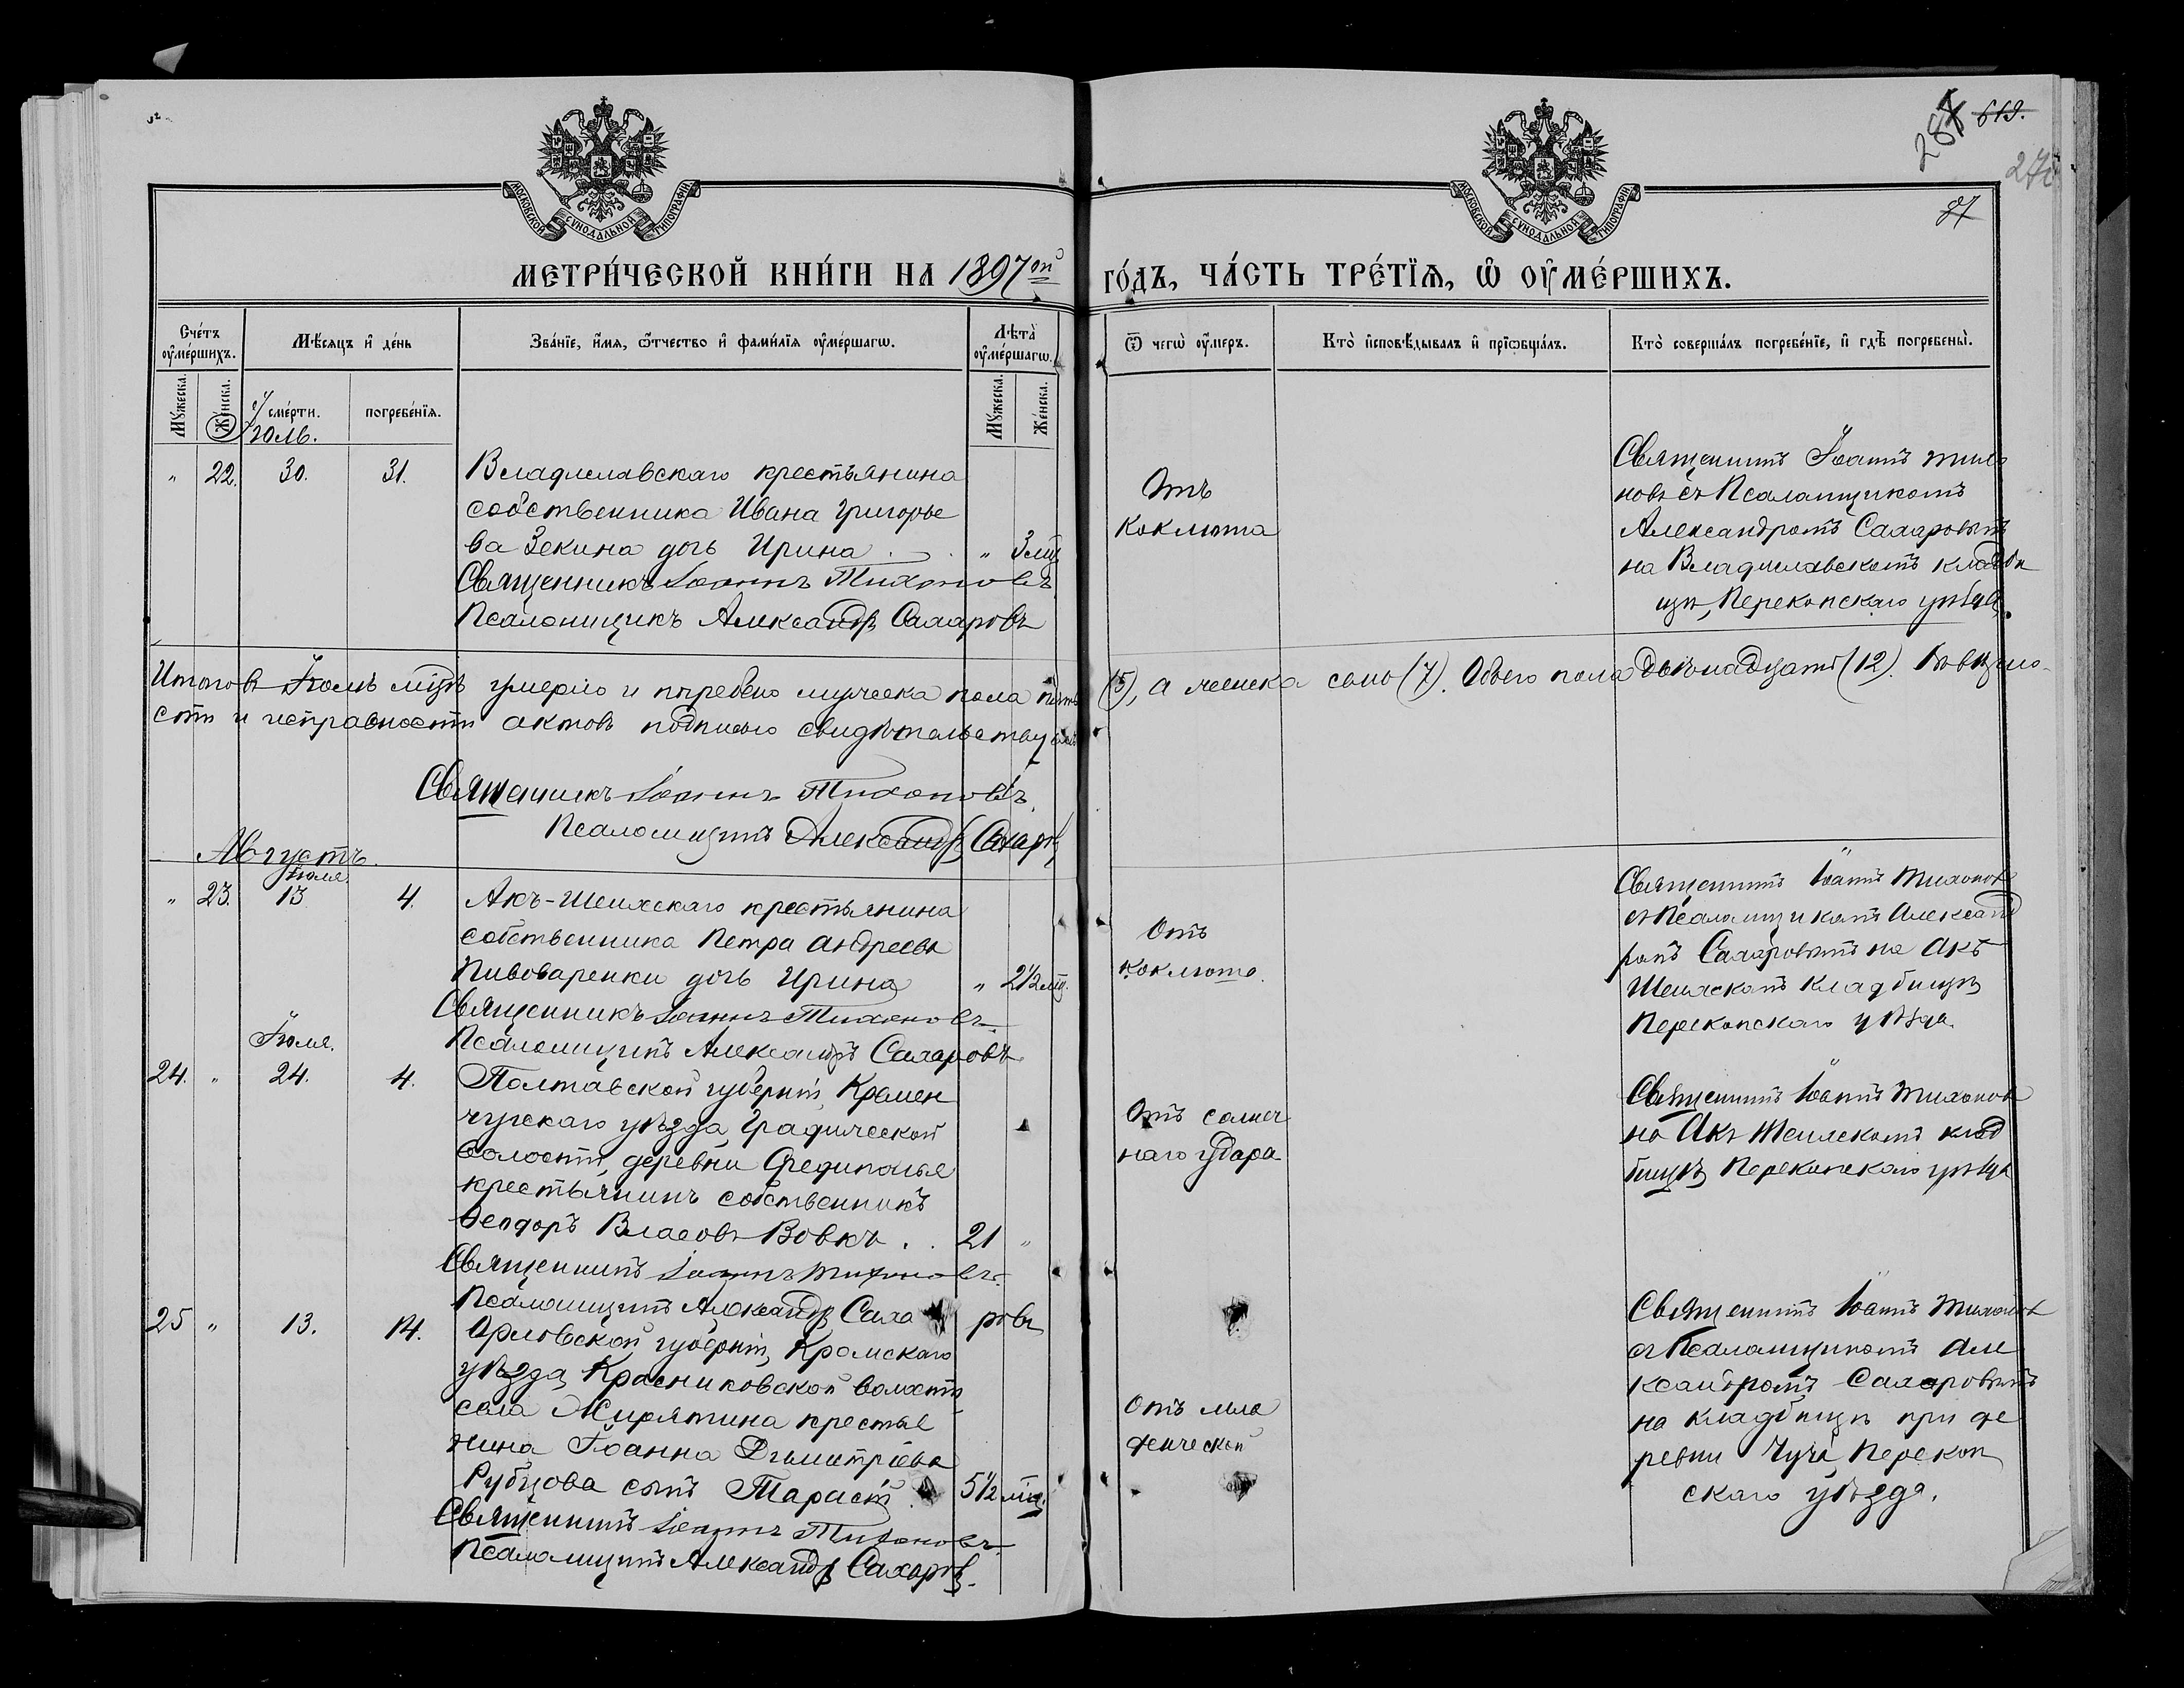 287 619.
87
МОСКОВСКОЙ СѴНОДАЛЬНОЙ ТИПОГРАФІИ
МОСКОВСКОЙ СѴНОДАЛЬНОЙ ТИПОГРАФІИ
МЕТРИ́ЧЕСКОЙ КНИ́ГИ НА 1897ой ГО́ДЪ, ЧА́СТЬ ТРЕ́ТЇѦ, Ѡ ОУМЕ́РШИХЪ.
Сче́тъ оумершихъ.
Мужеска.
Женска.
Мѣсяцъ и день
смерти.
погребенїя.
Званїе, имя, ѿчество и фамилїя оумершагѡ.
Лѣта оумершагѡ.
Мужеска.
Женска.
Ѿ чегѡ оумеръ.
Кто исповѣдывалъ и прїѡбщалъ.
Кто совершалъ погребенїе, и гдѣ погребены.
Іюль.
" 22. 30. 31.
Владиславскаго крестьянина
собственника Ивана Григорье
ва Зекина дочь Ирина . " 3 мц
Священникъ Іоаннъ Тихоновъ
Псаломщикъ Александръ Сахаровъ
Отъ
коклюша
Священникъ Іоаннъ Тихо
новъ съ Псаломщикомъ
Александромъ Сахаровымъ
на Владиславскомъ кладби
щѣ, Перекопскаго уѣзда.
Итого въ Іюлѣ мцѣ умерло и погребено мужеска пола пять (5), а женска семь (7). Обоего пола двѣнадцать (12). Въ вѣрно-
сти и исправности актовъ подписью свидѣтельствуемъ
Священникъ Іоаннъ Тихоновъ.
Псаломщикъ Александръ Сахаровъ
Августъ.
Іюля.
" 23. 13 4.
Акъ-Шеихскаго крестьянина
собственника Петра Андреева
Пивоваренки дочь Ирина " 2½ мц.
Священникъ Іоаннъ Тихоновъ
Псаломщикъ Александръ Сахаровъ
Отъ
коклюша.
Священникъ Іоаннъ Тихоновъ
съ Псаломщикомъ Александ
ромъ Сахаровымъ на Акъ
Шеихскомъ кладбищѣ
Перекопскаго уѣзда.
Іюля.
24. " 24. 4.
Полтавской губерніи, Кремен
чугскаго уѣзда, Градижской
волости, деревни
крестьянинъ собственникъ
Ѳеодоръ Власовъ Вовкъ . . 21 "
Священникъ Іоаннъ Тихоновъ.
Псаломщикъ Александръ Сахаровъ
Отъ солнеч
наго удара
Священникъ Іоаннъ Тихоновъ
на Акъ Шеихскомъ клад
бищѣ Перекопскаго уѣзда
25 " 13. 14.
Орловской губерніи, Кромскаго
уѣзда, Красниковской волости
села Жирятина крестья
нина Іоанна Димитріева
Рубцова сынъ Тарасій 5½ мц.
Священникъ Іоаннъ Тихоновъ.
Псаломщикъ Александръ Сахаровъ.
Отъ мла
денческой
Священникъ Іоаннъ Тихоновъ
съ Псаломщикомъ Але
ксандромъ Сахаровымъ
на кладбищѣ при де
ревни Чуча, Перекоп
скаго уѣзда.